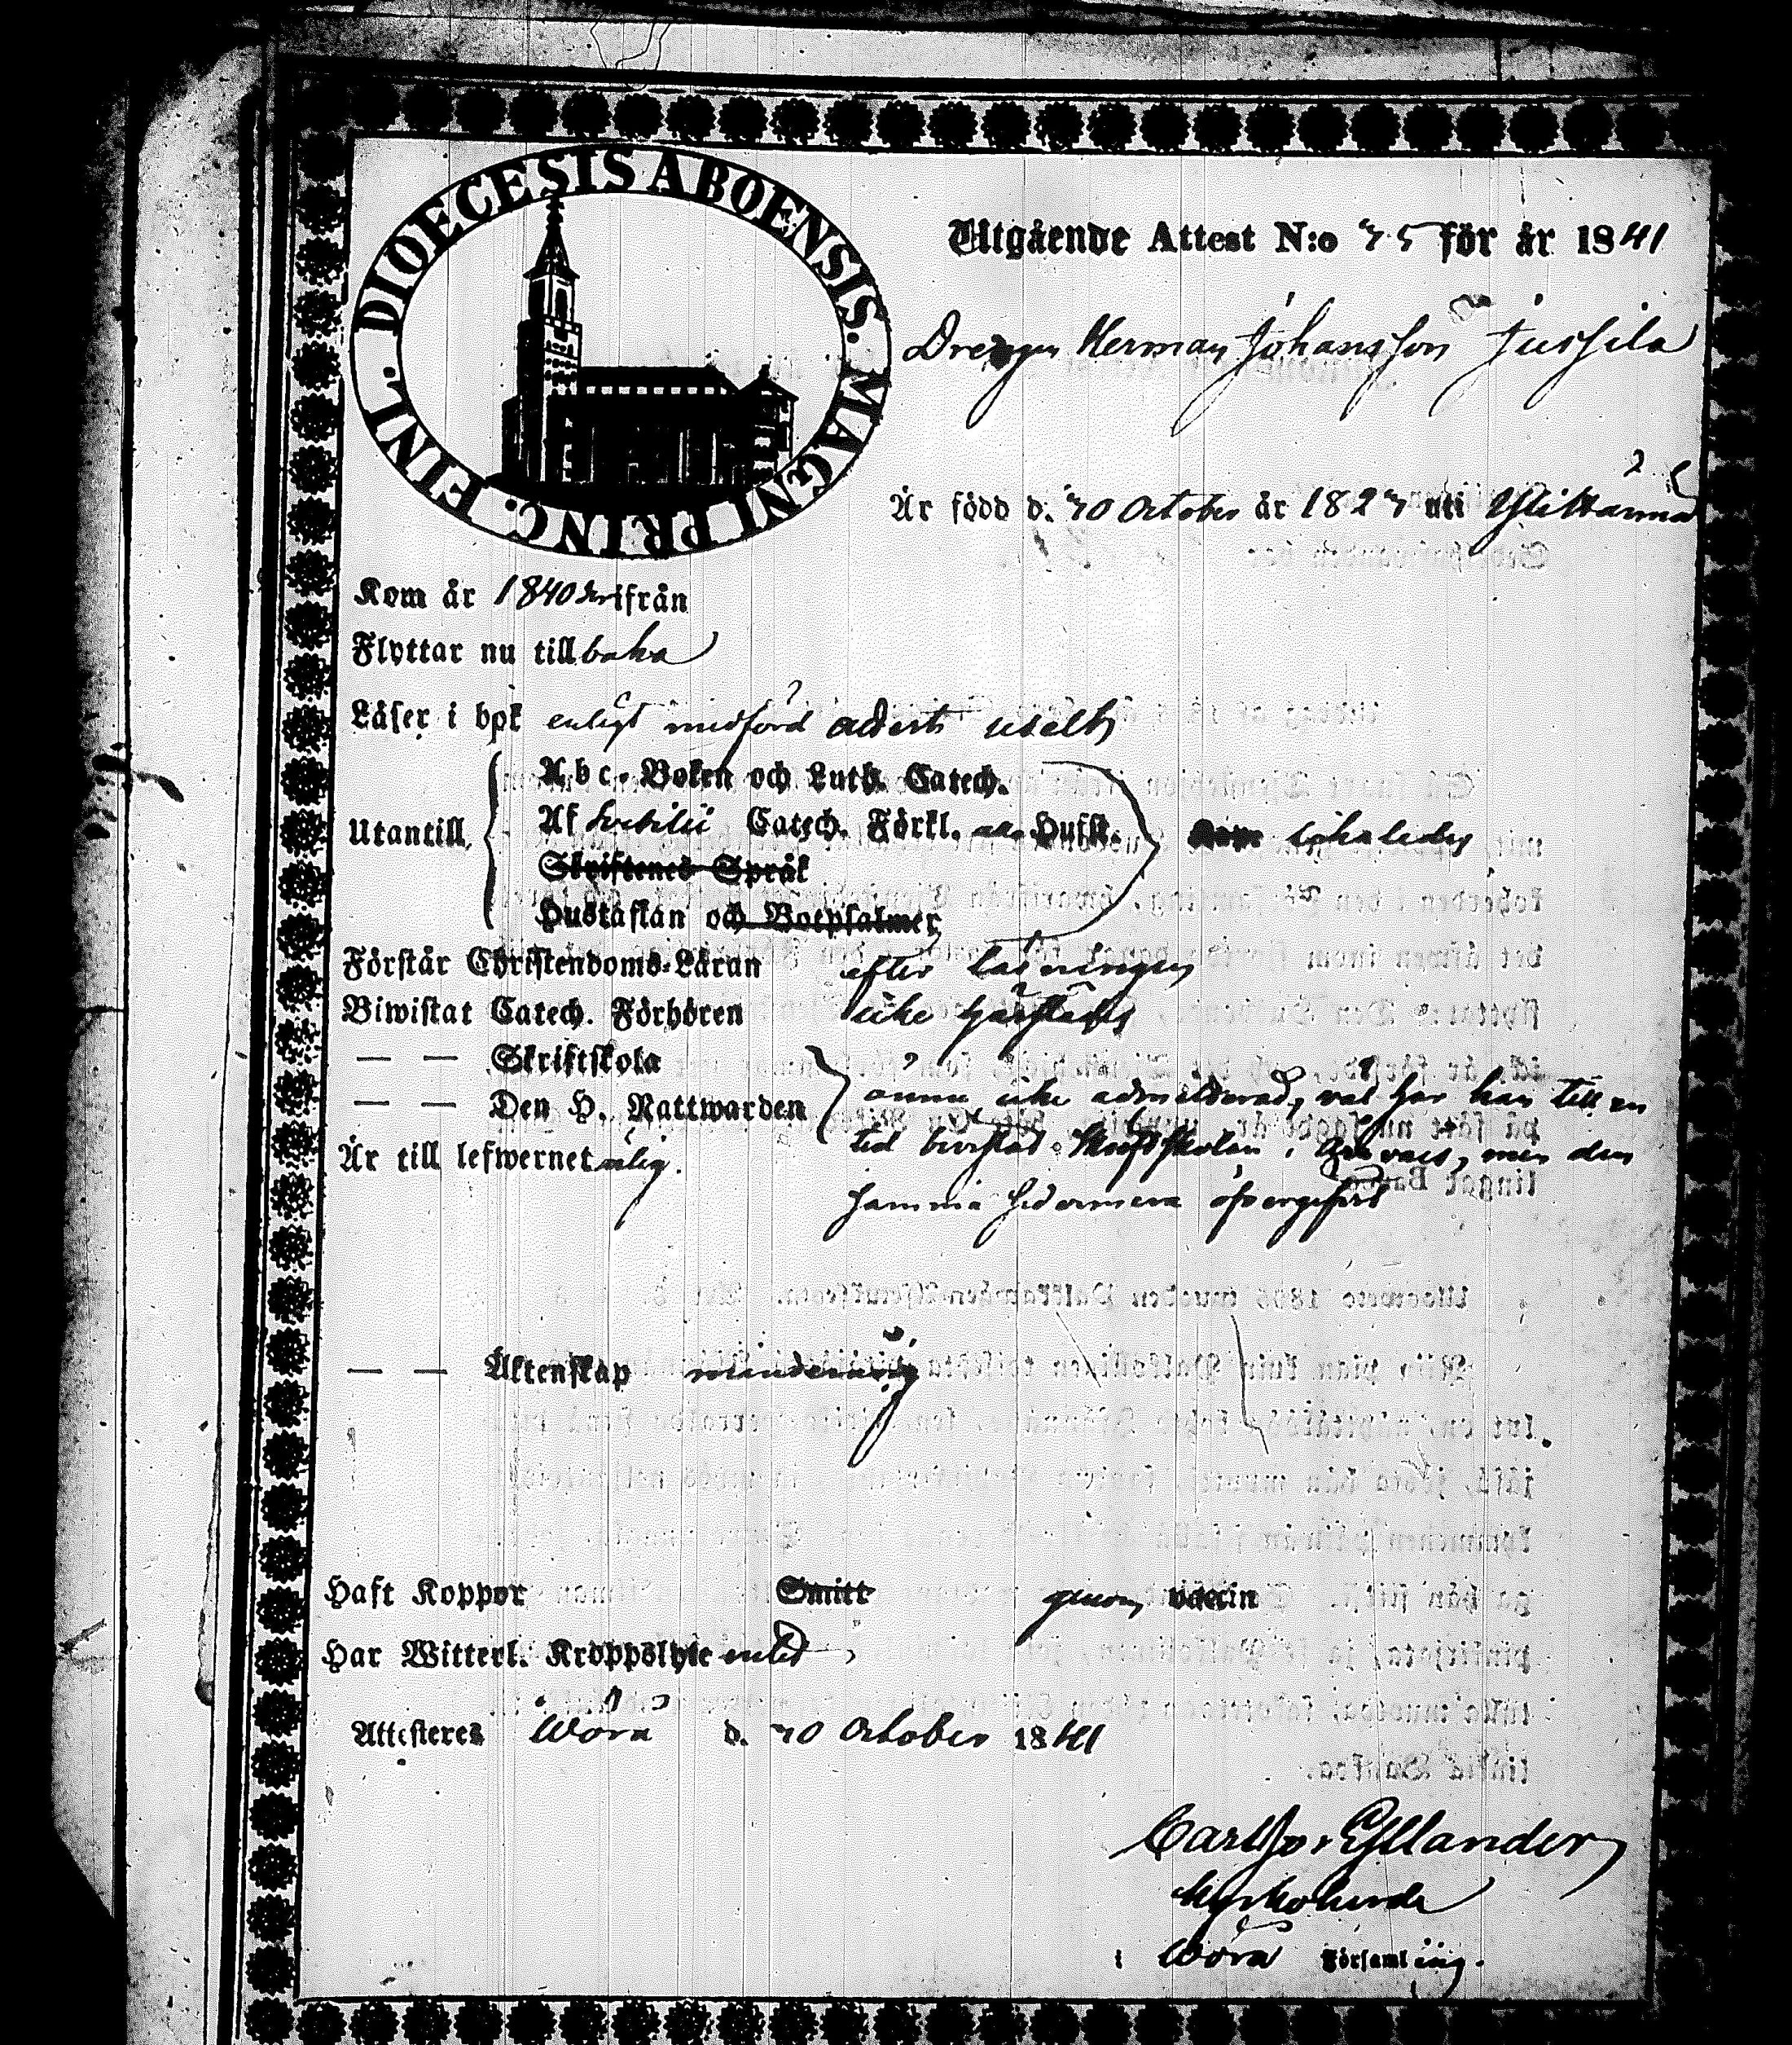 DIOECESIS ABOENSIS. MAGNI PRINC. FINL.
Utgående Attest N:o 35 för år 1841
Drengen Herman Johansson Jussila
Är född d. 30 October år 1823 uti Ylistaro
Kom år 1840 ifrån
Flyttar nu tillbaka
Läser i bok enligt medförd attest uselt
Abc-Boken och Luth. Catech.
Utantill Af Svebilii Catech. Förkl. Husfl. likaledes
Skriftenes Språk
Hustaflan och Botpsalmer
Förstår Christendoms-Läran efter läsningen
Biwistat Catech. Förhören icke härstädes
— — Skriftskola
— — Den H. Nattwarden ännu icke admitterad, väl har han till en
Är till lefwernet ärlig. tid bevistat Skriftskolan men den
samma sedermera öfvergifvit
— — Äktenskap minderårig
Haft Koppor Smitt genom vaccin
Har Witterl. Kroppslyte
Attesteres Wörå d. 30 October 1841
Carl Yllander
Kyrkoherde
i Wörå Församling.